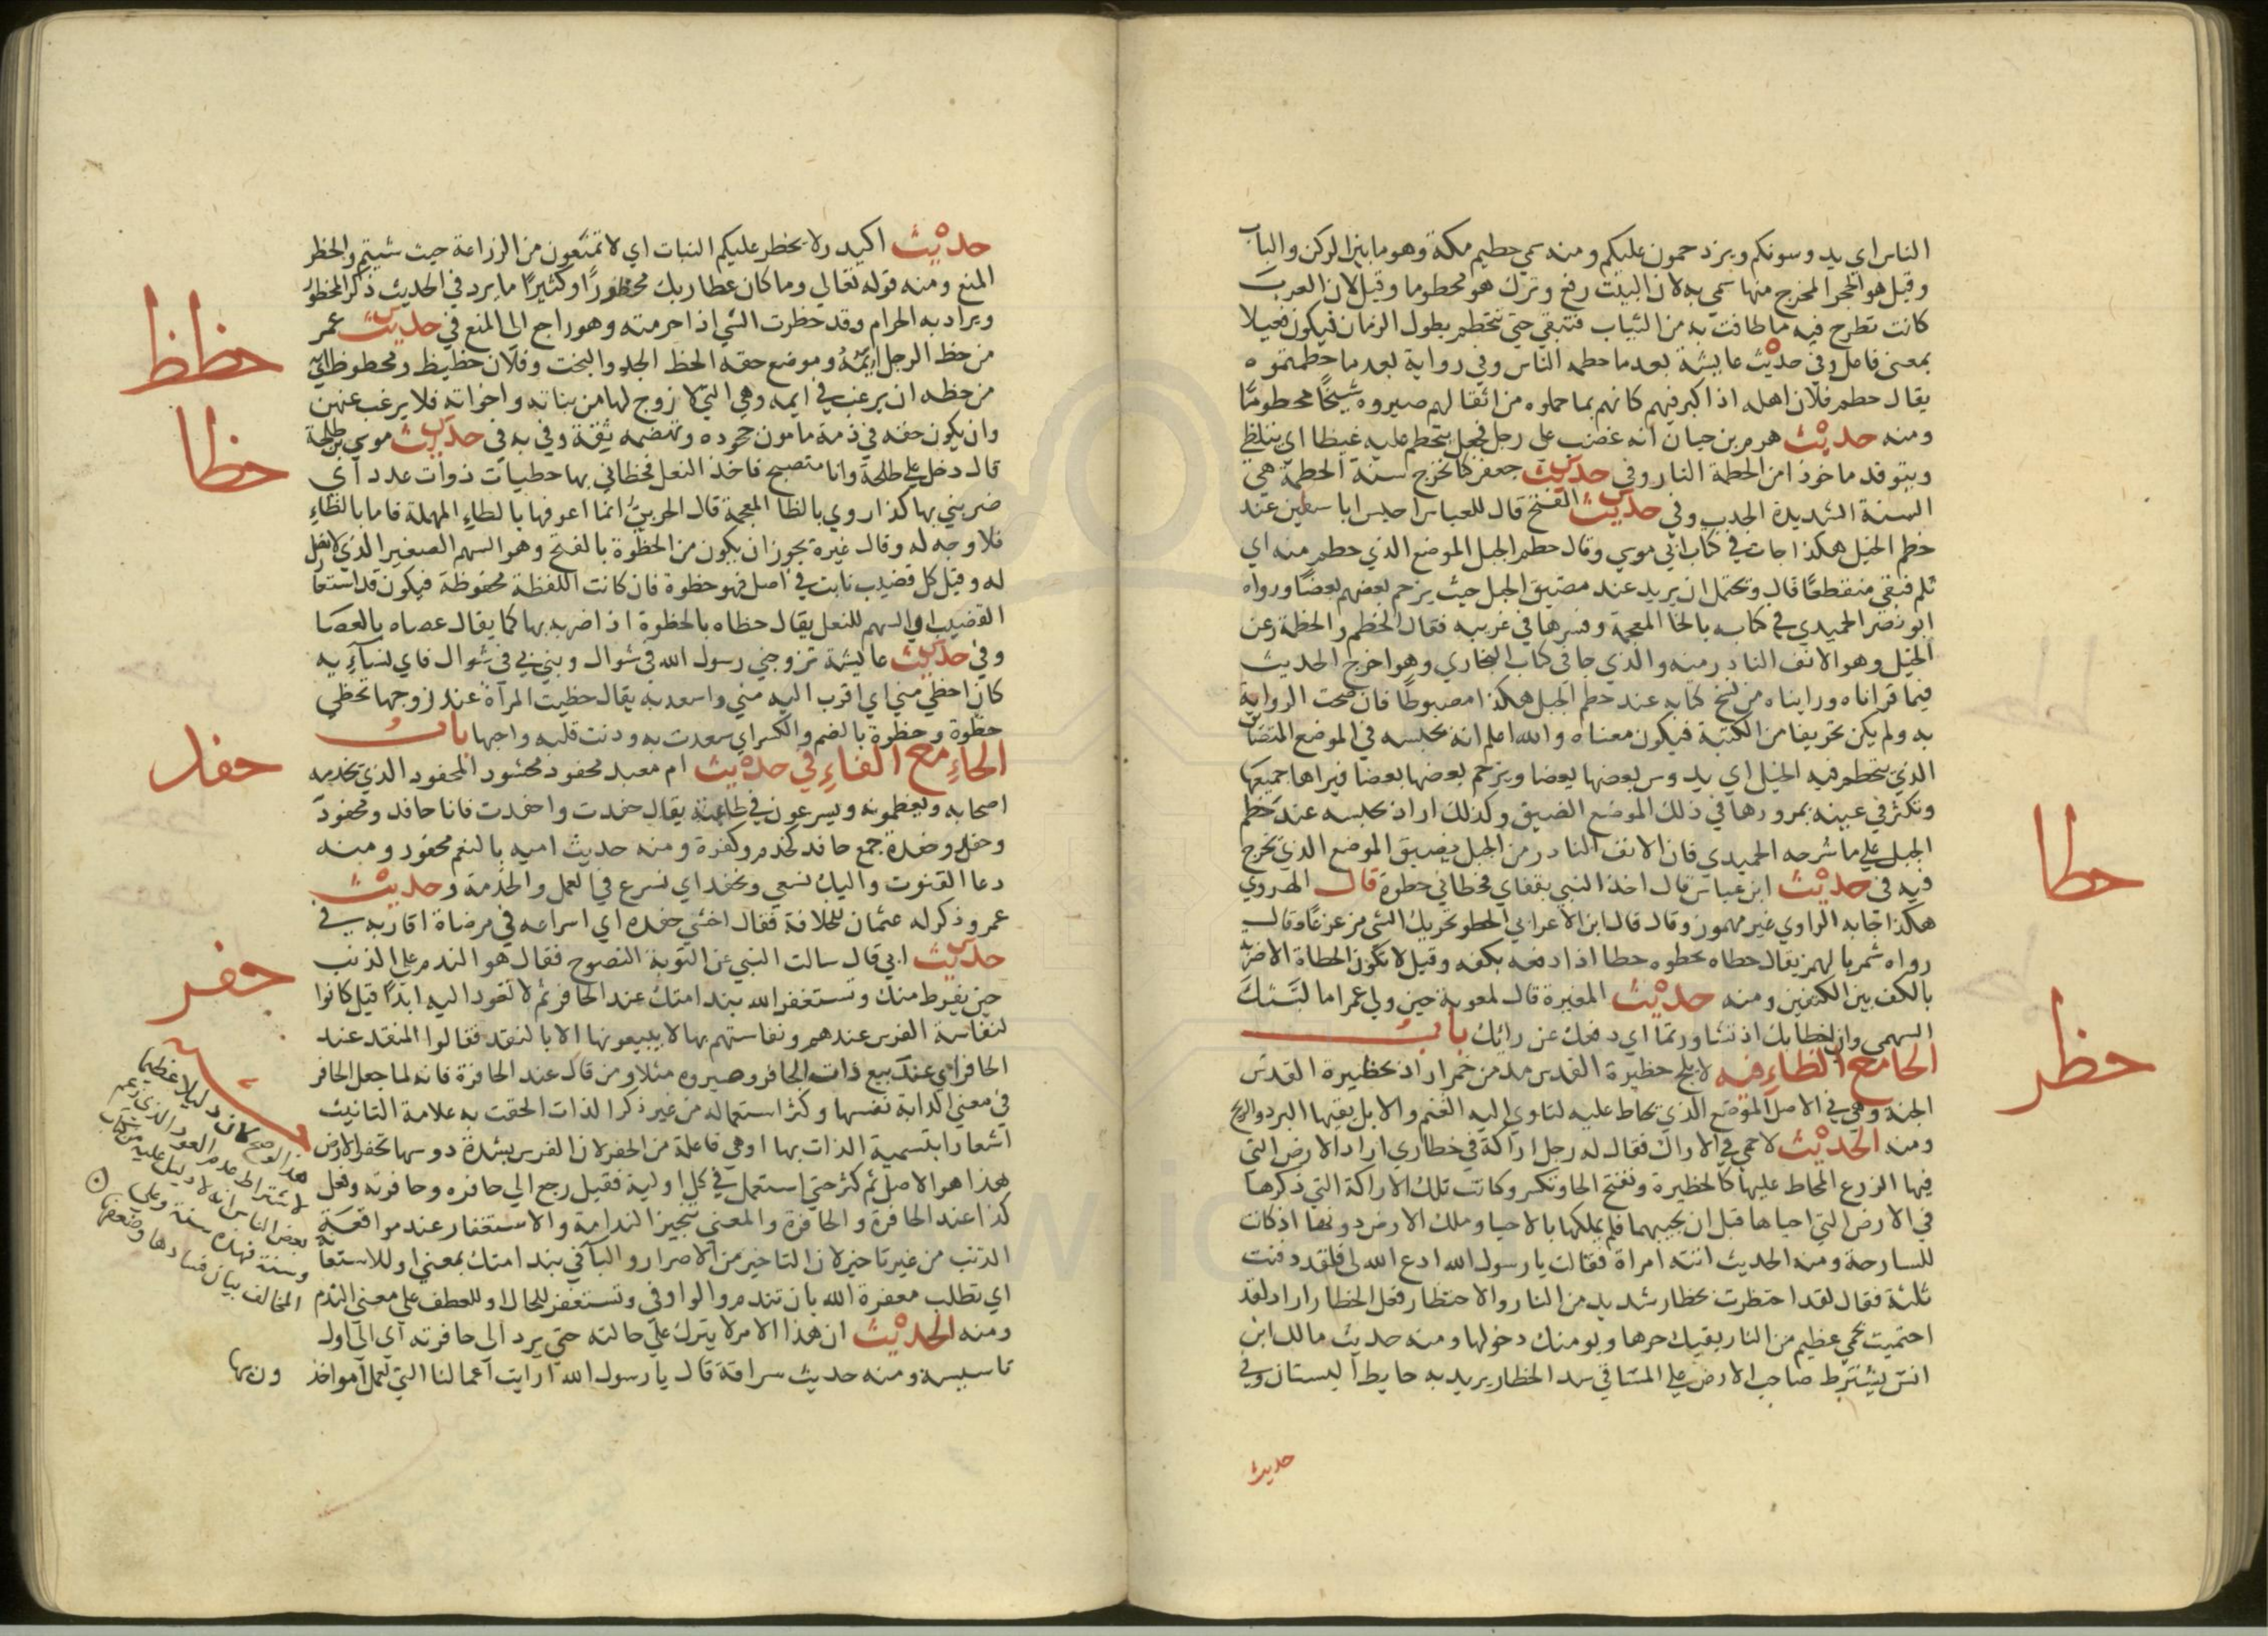 الناس اي يدوسونكم ويزدحمون عليكم ومنه سمي حطيم مكة وهو ما بين الركن والباب
وقيل هو الحجر المخرج منها سمي به لان البيت رفع وترك هو محطوما وقيل لان العرب
كانت تطرح فيه ما طافت به من الثياب فتبقي حتي تنحطم بطول الزمان فيكون فعيلا
بمعني فاعل وفي حديث عايشة بعد ما حطمه الناس وفي رواية بعد ما حطمتموه
يقال حطم فلان اهله اذا كبر فيهم كانهم بما حملوه من اثقالهم صيروه شيخا محطوما
ومنه حديث هرم بن حيان انه غضب علي رجل فجعل يتحطم عليه غيظا اي يتلظي
ويتوقد ماخوذ امن الحطمة النار وفي حديث جعفر كنا نخرج سنة الحطمة هي
السنة الشديدة الجدب وفي حديث الفتح قال للعباس احبس ابا سفين عند
حطم الخيل هكذا جات في كتاب ابي موسي وقال حطم الجبل الموضع الذي حطم منه اي
ثلم فبقي منقطعا قال ويحتمل ان يريد عند مضيق الجبل حيث يزحم بعضهم بعضا ورواه
ابو نصر الحميدي في كتابه بالخا المعجمة وفسرها في غريبه فقال الخطم والخطمة رعن
الجبل وهو الانف النادر منه والذي جا في كتاب البخاري وهو اخرج الحديث
فيما قراناه ورايناه من نسخ كتابه عند حطم الخيل هكذا مضبوطا فان صحت الرواية
به ولم يكن تحريفا من الكتبة فيكون معناه والله اعلم انه يحبسه في الموضع المتضايق
الذي يتحطم فيه الخيل اي يدوس بعضها بعضا ويزحم بعضها بعضا فيراها جميعها
وتكثر في عينه بمرورها في ذلك الموضع الضيق وكذلك اراد بحبسه عند خطم
الجبل علي ما شرحه الحميدي فان الانف النادر من الجبل يضيق الموضع الذي يخرج
فيه في حديث ابن عباس قال اخذ النبي بقفاي فحطاني حطوة قال الهروي
هكذا جا به الراوي غير مهموز وقال قال ابن الاعرابي الحطو تحريك الشي مزعزعا وقال
رواه شمر بالهمز يقال حطاه يحطوه حطا اذا دفعه بكفه وقيل لا تكون الحطاة الا ضربة
بالكف بين الكتفين ومنه حديث المغيرة قال لمعوية حين ولي عمرا ما لبثك
السهمي وان حطا بك اذ تشاورتما اي دفعك عن رايك باب
الحا مع الظاء فيه لا يلج حظيرة القدس مدمن خمر اراد بحظيرة القدس
الجنة وهي في الاصل الموضع الذي يحاط عليه لتاوي اليه الغنم والابل يقيها البرد والريح
ومنه الحديث لا حمي في الاراك فقال له رجل اراكة في حظاري اراد الارض التي
فيها الزرع المحاط عليها كالحظيرة وتفتح الحا وتكسر وكانت تلك الاراكة التي ذكرها
في الارض التي احياها قبل ان يحييها فلم يملكها بالاحيا وملك الارض دونها اذ كانت
للسارحة ومنه الحديث اتته امراة فقالت يا رسول الله ادع الله لي فلقد دفنت
ثلثة فقال لقد احتظرت بحظار شديد من النار والاحتظار فعل الحظار اراد لقد
احتميت بحمي عظيم من النار يقيك حرها ويومنك دخولها ومنه حديث مالك ابن
انس يشترط صاحب الارض علي المساقي سد الحظار يريد به حايط البستان وفي
حديث
حطا
حظر
حديث اكيدر ولا يحظر عليكم النبات اي لا تمنعون من الزراعة حيث شيتم والحظر
المنع ومنه قوله تعالي وما كان عطا ربك محظورا وكثيرا ما يرد في الحديث ذكر المحظور
ويراد به الحرام وقد حظرت الشي اذا حرمته وهو راجع الي المنع في حديث عمر
من حظ الرجل نفاق ايمه وموضع حقه الحظ الجد والبخت وفلان حظيظ ومحظوظ اي
من حظه ان يرغب في ايمه وهي التي لا زوج لها من بناته واخواته فلا يرغب عنهن
وان يكون حقه في ذمة مامون جحوده وتهضمه ثقة وفي به في حديث موسي بن طلحة
قال دخل علي طلحة وانا متصبح فاخذ النعل فحظاني بها حظيات ذوات عدد اي
ضربني بها كذا روي بالظا المعجمة قال الحربي انما اعرفها بالطاء المهملة فاما بالظاء
فلا وجه له وقال غيره يجوز ان يكون من الحظوة بالفتح وهو السهم الصغير الذي لا نصل
له وقيل كل قضيب نابت في اصل فهو حظوة فان كانت اللفظة محفوظة فيكون قد استعار
القضيب او السهم للنعل يقال حظاه بالحظوة اذا ضربه بها كما يقال عصاه بالعصا
وفي حديث عايشة تزوجني رسول الله في شوال وبني بي في شوال فاي نسايه
كان احظي مني اي اقرب اليه مني واسعد به يقال حظيت المراة عند زوجها تحظي
حظوة وحظوة بالضم والكسر اي سعدت به ودنت قلبه واحبها باب
الحاء مع الفاء في حديث ام معبد محفود محشود المحفود الذي يخدمه
اصحابه ويعظمونه ويسرعون في طاعته يقال حفدت واحفدت فانا حافد ومحفود
وحفد وحفدة جمع حافد كخدم وكفرة ومنه حديث امية بالنعم محفود ومنه
دعا القنوت واليك نسعي ونحفد اي نسرع في العمل والخدمة وحديث
عمر وذكر له عثمان للخلافة فقال اخشي حفده اي اسراعه في مرضاة اقاربه في
حديث ابي قال سالت النبي عن التوبة النصوح فقال هو الندم علي الذنب
حين يفرط منك وتستغفر الله بندامتك عند الحافر ثم لا تعود اليه ابدا قيل كانوا
لنفاسة الفرس عندهم ونفاستهم بها لا يبيعونها الا بالنقد فقالوا النقد عند
الحافر اي عند بيع ذات الحافر وصيروه مثلا ومن قال عند الحافرة فانه لما جعل الحافر
في معني الدابة نفسها وكثر استعماله من غير ذكر الذات الحقت به علامة التانيث
اشعارا بتسمية الذات بها او هي فاعلة من الحفر لان الفرس بشدة دوسها تحفر الارض
هذا هو الاصل ثم كثر حتي استعمل في كل اولية فقيل رجع الي حافره وحافرته وفعل
كذا عند الحافرة والحافرة والمعني تنجيز الندامة والاستغفار عند مواقعة
الذنب من غير تاخير لان التاخير من الاصرار والبا في بندامتك بمعني مع او للاستعانة
اي تطلب مغفرة الله بان تندم والواو في وتستغفر للحال او للعطف علي معني الندم
ومنه الحديث ان هذا الامر لا يترك علي حالته حتي يرد الي حافرته اي الي اول
تاسيسه ومنه حديث سراقة قال يا رسول الله ارايت اعمالنا التي نعمل امواخذون بها
حظظ
حظا
حفد
حفر